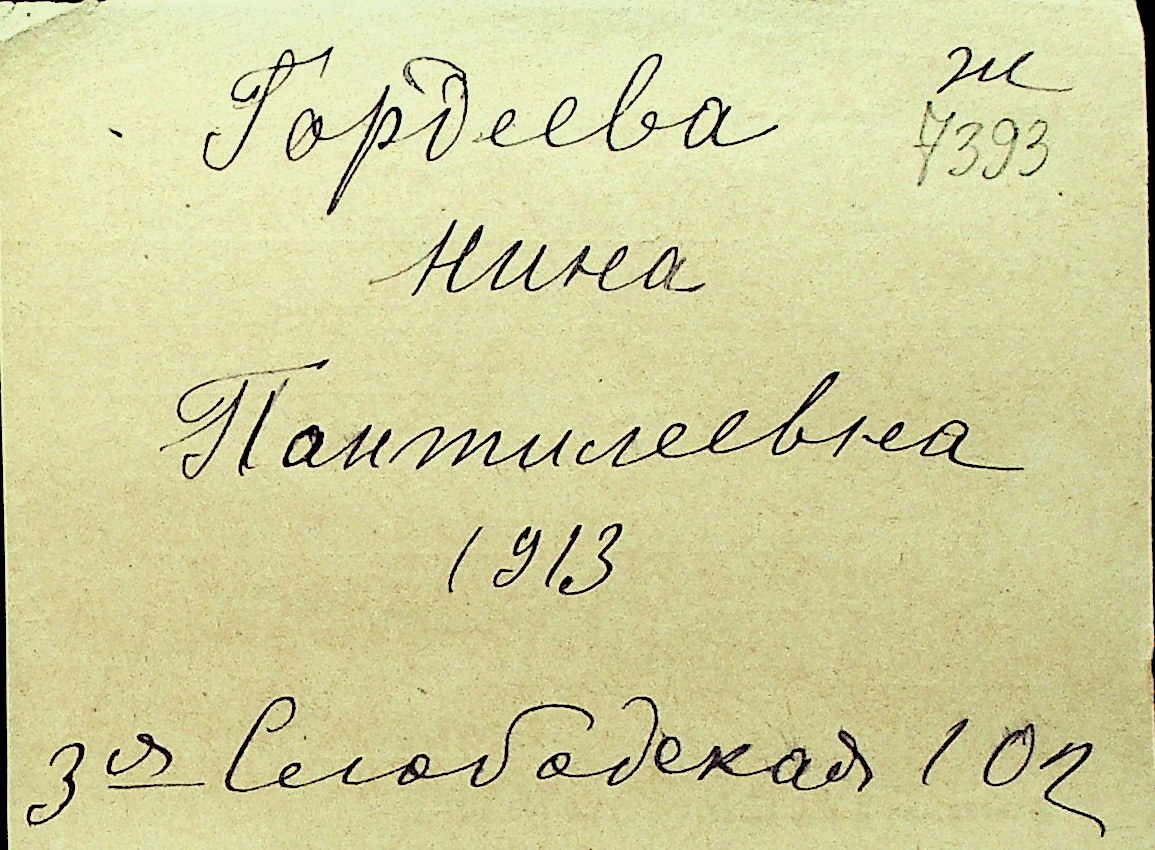 Гордеева ж
7393
Нина
Пантилеевна
1913
3я Слободская 102